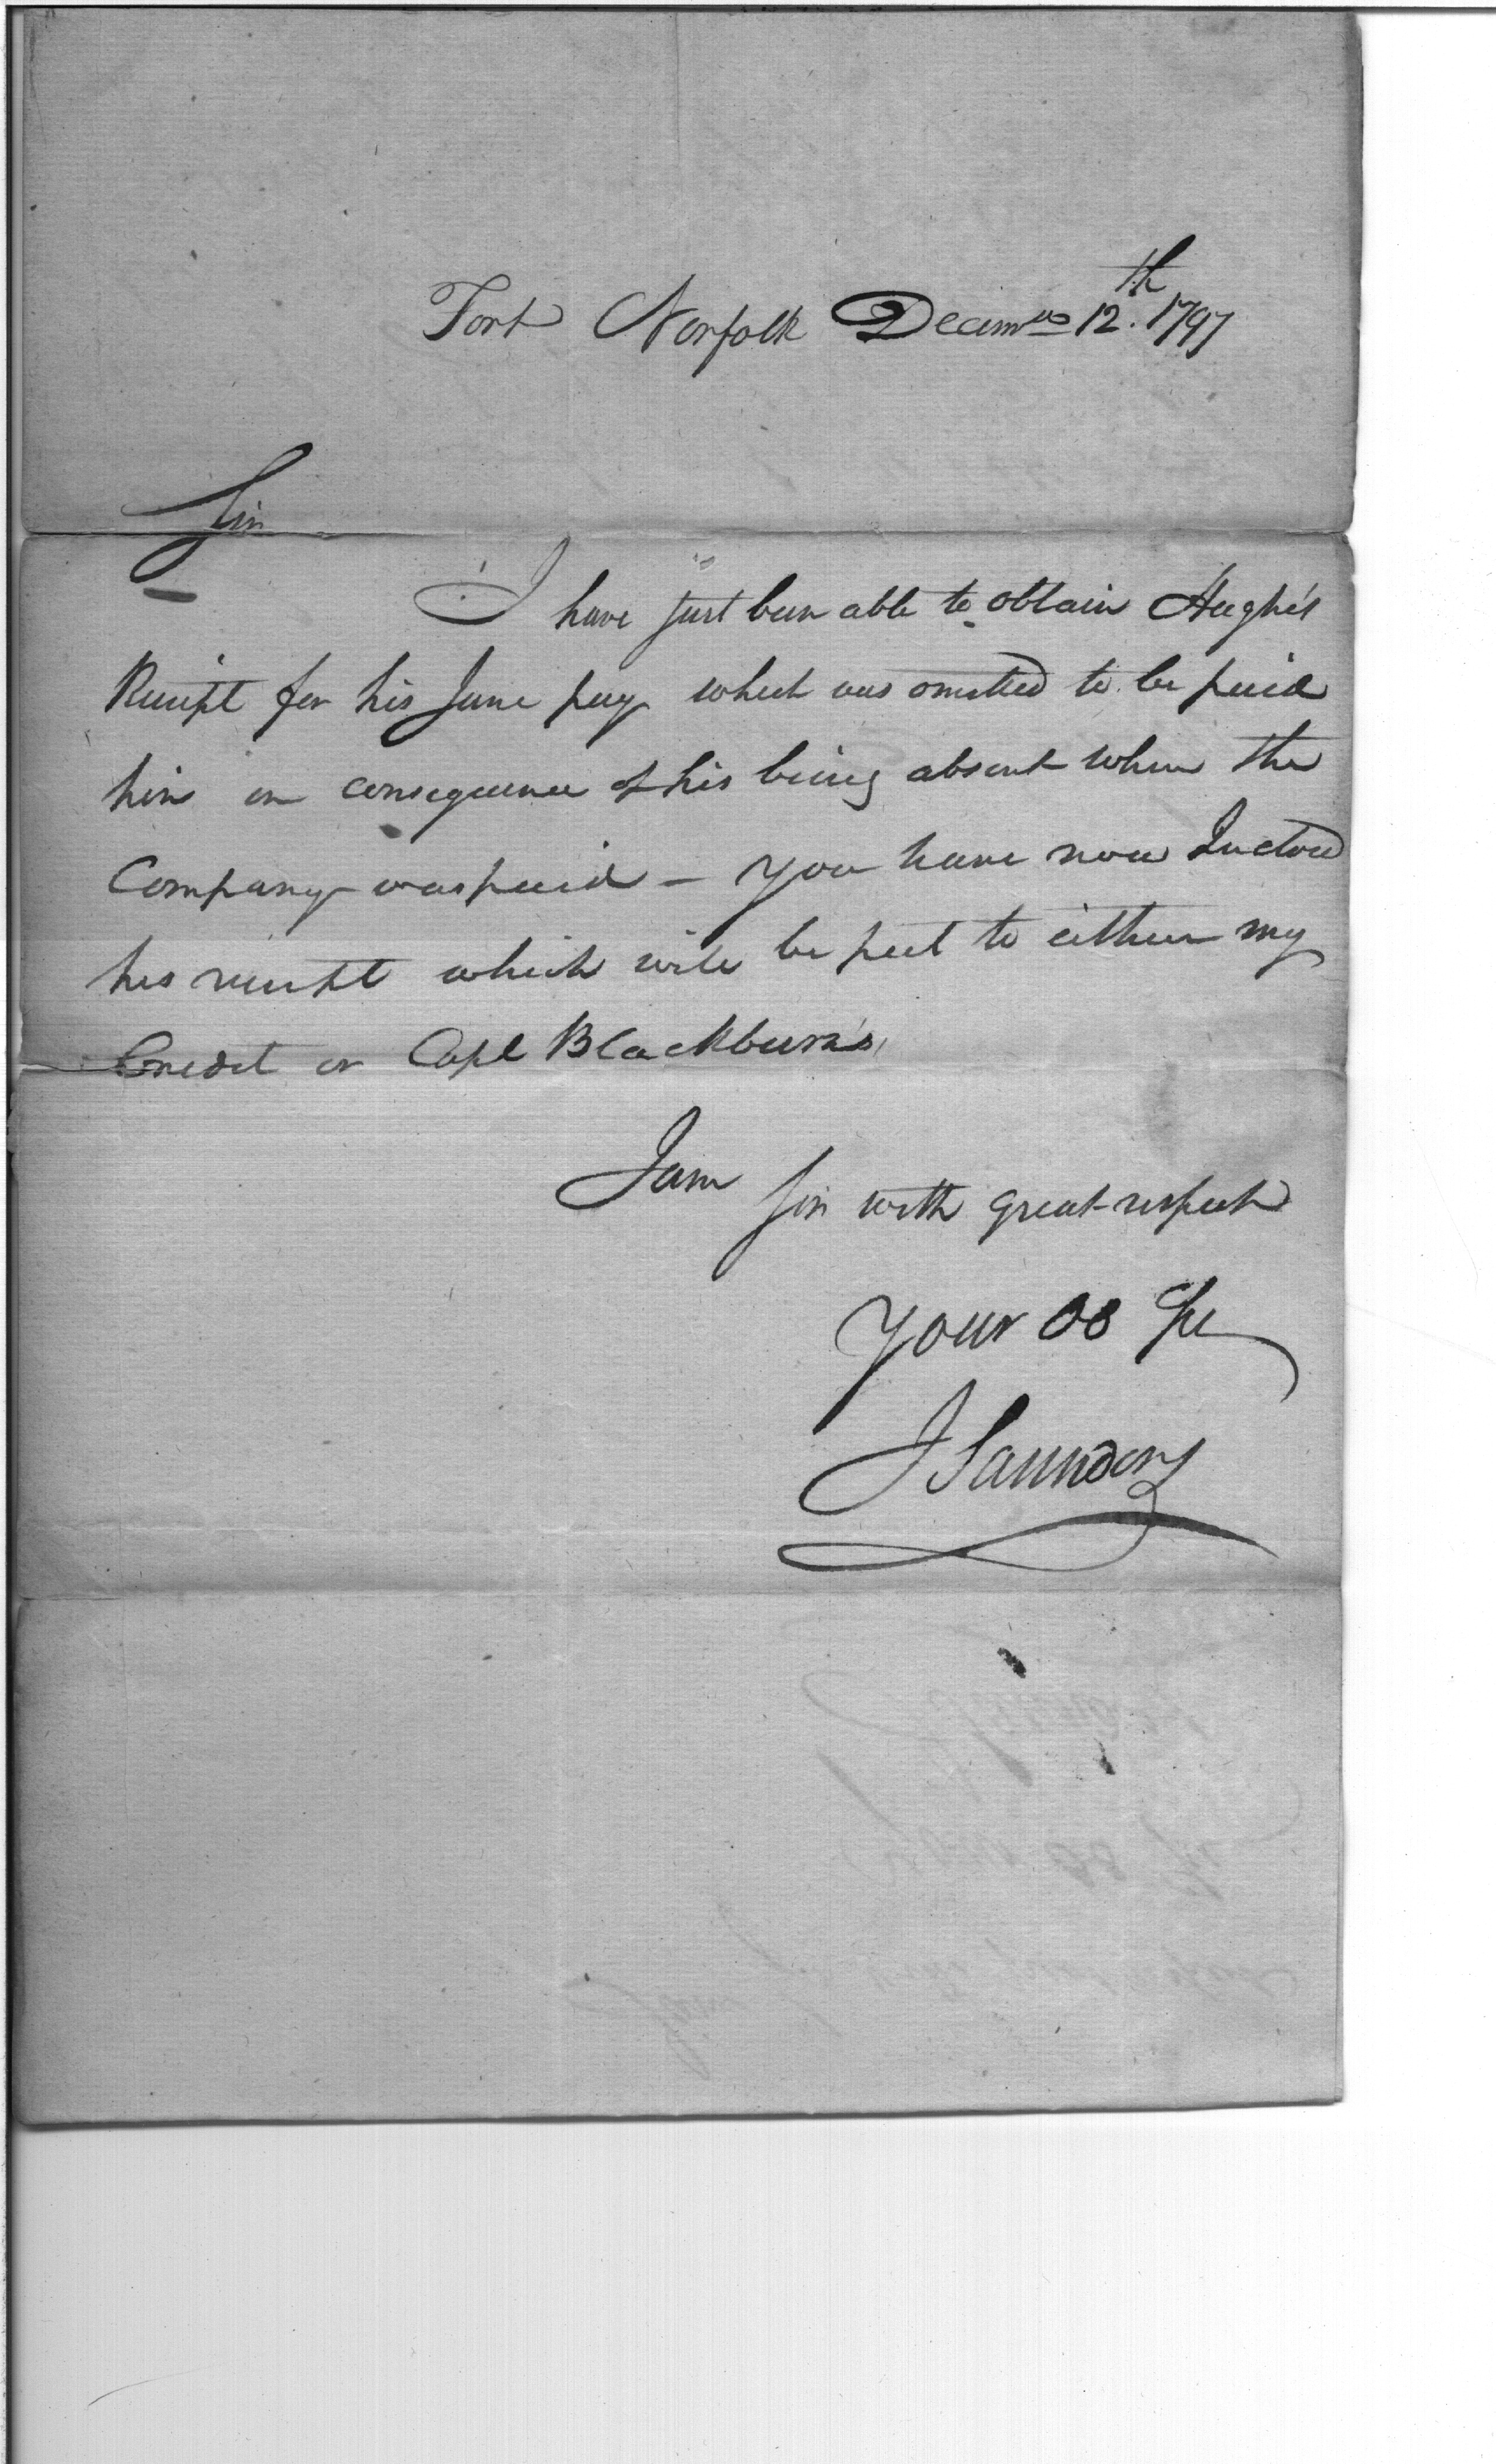 Fort Norfolk Decem<sup>br</sup> 12<sup>th</sup>. 1797
Sir
I have just been able to obtain Hughe's
Receipt for his June pay which was omitted to be paid
him in consequence of his being absent when the
Company was paid – you have now Inclosed
his receipt which will be put to either my
Credit or Capt Blackburn's
I am
Sir with great respect
Your Ob Se
J Saunders